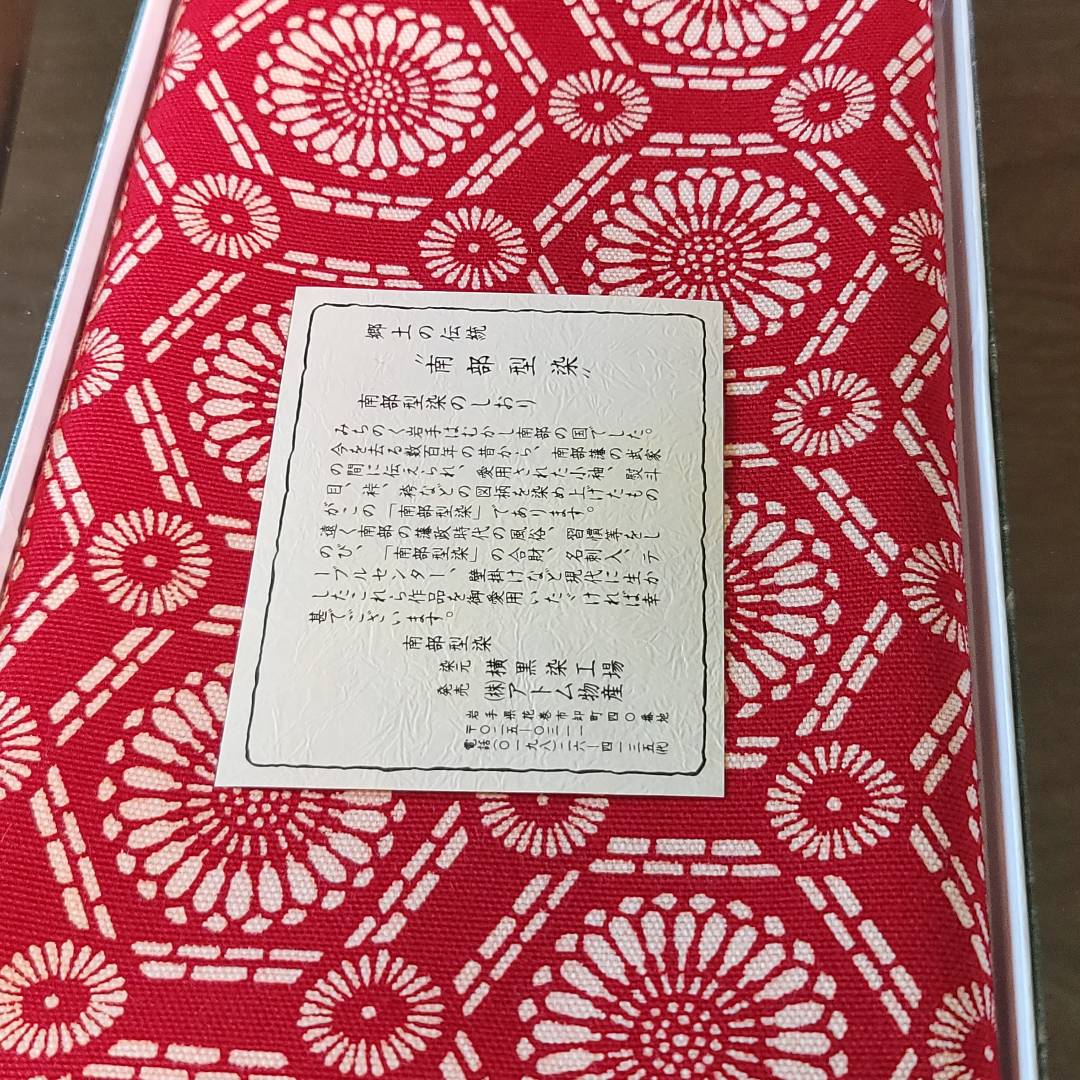 郷土の伝統
〝南部型染〟
南部型染のしおり
みちのく岩手はむかし南部の国でした。
今を去る数百年の昔から、南部藩の武家
の間に伝えられ、愛用された小袖、熨斗
目、裃、袴などの図柄を染め上げたもの
がこの「南部型染」であります。
遠く南部の藩政時代の風俗、習慣等をし
のび、「南部型染」の合財、名刺入、テ
ーブルセンター、壁掛けなど現代に生か
したこれら作品を御愛用いたゞければ幸
甚でございます。
南部型染
染元 横黒染工場
発売 ㈱アトム物産
岩手県花巻市卸町四〇番地
〒〇二五―〇三一一
電話(〇一九八)二六―四一三五(代)